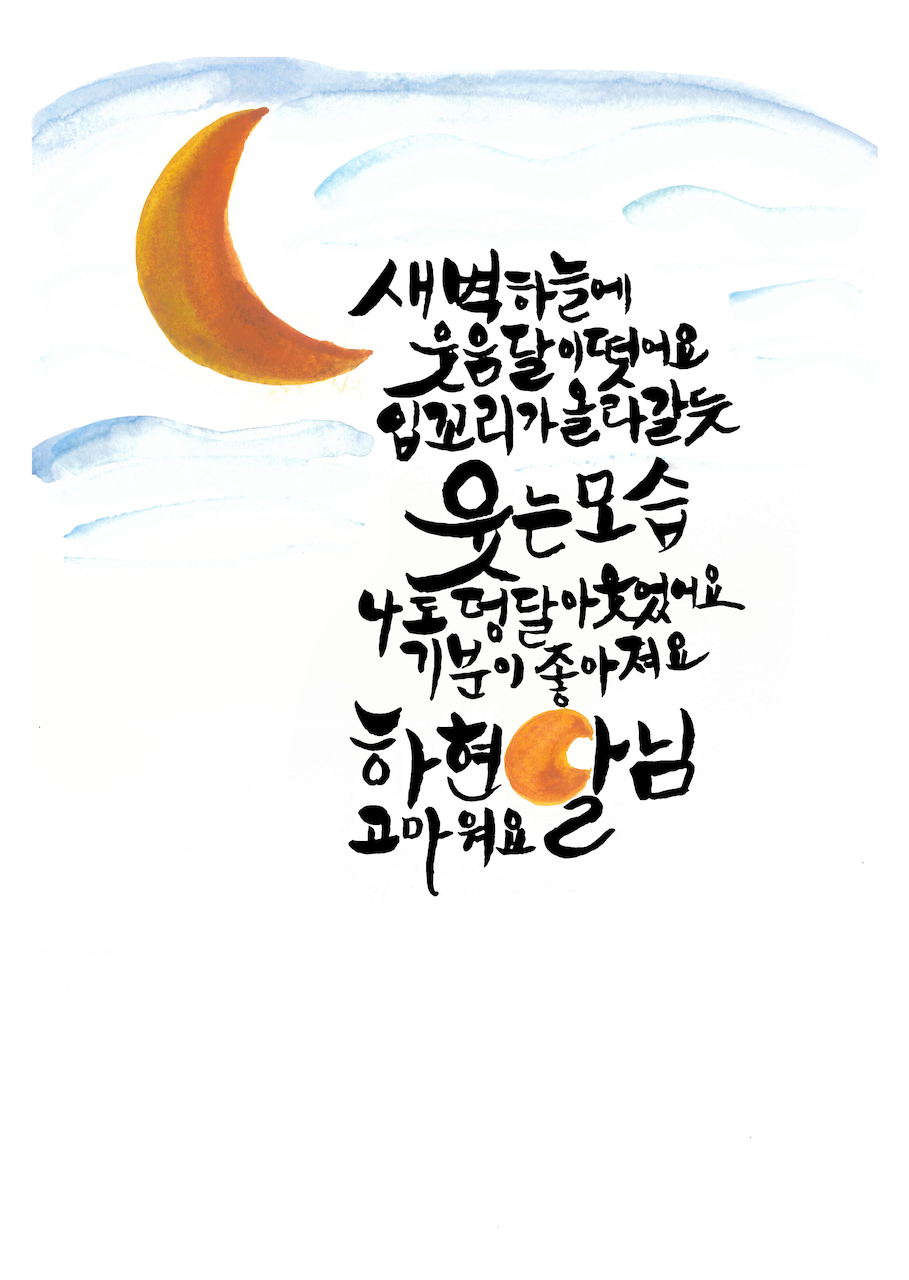 새벽하늘에
웃음달이떴어요
입꼬리가올라갈듯
웃는모습
나도덩달아웃었어요
기분이좋아져요
하현달님
고마워요